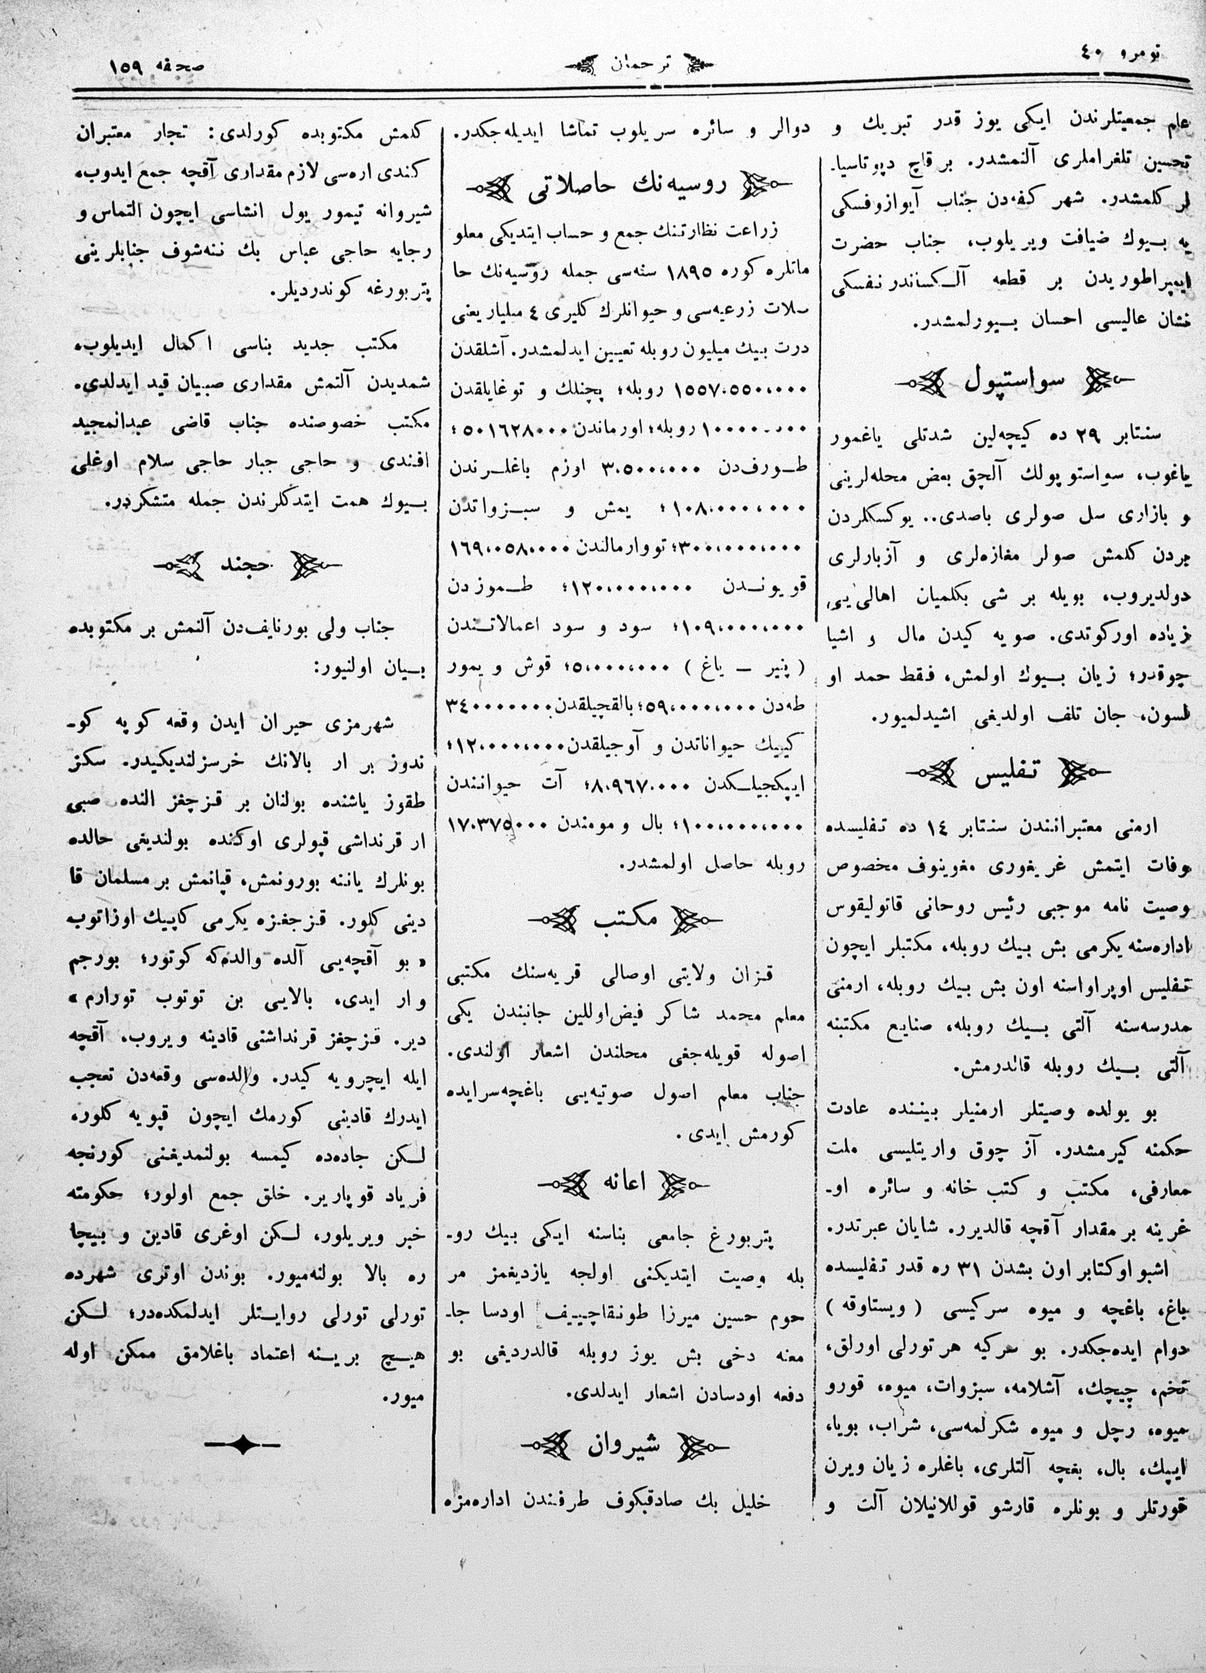 نومرو ٤٠
ترجمان
صحفه ١٥٩
علم جمعیتلرندن ایکی یوز قدر تبریك و
تحسین تلغراملری آلنمشدر. بر قاچ دپوتاسیا-
لر کلمشدر. شهر کفه‌دن جناب آیوازوفسکی
یه بیوك ضیافت ویریلوب، جناب حضرت
ایمپراطوریدن بر قطعه آلکساندر نفسکی
نشان عالیسی احسان بیورلمشدر.
سواستپول
سنتابر ٢٩ ده کیچه‌لین شدتلی یاغمور
یاغوب، سواستوپولك آلچق بعض محله‌لرینی
و بازاری سل صولری باصدی.. یوکسکلردن
بردن کلمش صولر مغازه‌لری و آزبارلری
دولدیروب، بویله بر شی بکلمیان اهالی‌یی،
زیاده اورکوتدی. صویه کیدن مال و اشیا
چوقدر؛ زیان بیوك اولمش، فقط حمد او
لسون، جان تلف اولدیغی اشیدلمیور.
تفلیس
ارمنی معتبرانندن سنتابر ١٤ ده تفلیسده
وفات ایتمش غریغوری مغوینوف مخصوص
وصیت نامه موجبی رئیس روحانی قاتولیقوس
اداره‌سنه یکرمی بش بیك روبله، مکتبلر ایچون
تفلیس اوپراواسنه اون بش بیك روبله، ارمنی
مدرسه‌سنه آلتی بیك روبله، صنایع مکتبنه
آلتی بیك روبله قالدرمش.
بو یولده وصیتلر ارمنیلر بیننده عادت
حکمنه کیرمشدر. آز چوق واریتلیسی ملت
معارفی، مکتب و کتب خانه و سائره او-
غرینه بر مقدار آقچه قالدیرر. شایان عبرتدر.
اشبو اوکتابر اون بشدن ٣١ ره قدر تفلیسده
باغ، باغچه و میوه سرکیسی (ویستاوقه)
دوام ایده‌جکدر. بو سرکیه هر تورلی اورلق،
تخم، چیچك، آشلامه، سبزوات، میوه، قورو
میوه، رچل و میوه شکرلمه‌سی، شراب، بویا،
ایپك، بال، بغچه آلتلری، باغلره زیان ویرن
قورتلر و بونلره قارشو قوللانیلان آلت و
دوالر و سائره سریلوب تماشا ایدیله‌جکدر.
روسیه‌نك حاصلاتی
زراعت نظارتنك جمع و حساب ایتدیکی معلو
ماتلره کوره ١٨٩٥ سنه‌سی جمله روسیه‌نك حا
سلات زرعیه‌سی و حیوانلرك کلیری ٤ ملیار یعنی
درت بیك میلیون روبله تعیین ایدلمشدر. آشلقدن
١٥٥٧،٥٥٠،٠٠٠ روبله؛ پچنلك و توغایلقدن
روبله؛ اورماندن ٥٠١٦٢٨٠٠٠؛
طورف‌دن ٣،٥٠٠،٠٠٠ اوزم باغلرندن
١٠٨،٠٠٠،٠٠٠؛ یمش و سبزواتدن
٣٠٠،٠٠٠،٠٠٠؛ تووارمالندن ١٦٩،٠٥٨،٠٠٠
قویوندن ١٢٠،٠٠٠،٠٠٠؛ طموزدن
١٠٩،٠٠٠،٠٠٠؛ سود و سود اعمالاتندن
(پنیر – یاغ) ٥،٠٠٠،٠٠٠؛ قوش و یمور
طه‌دن ٥٩،٠٠٠،٠٠٠؛ بالقچیلقدن ٣٤٠٠٠٠٠٠٠
کییك حیواناتدن و آوجیلقدن ١٢،٠٠٠،٠٠٠؛
ایپکجیلکدن ٨،٩٦٧،٠٠٠؛ آت حیوانندن
١٠٠،٠٠٠،٠٠٠؛ بال و مومندن ١٧،٣٧٥،٠٠٠
روبله حاصل اولمشدر.
مکتب
قزان ولایتی اوصالی قریه‌سنك مکتبی
معلم محمد شاکر فیض‌اوللین جانبندن یکی
اصوله قویله‌جغی محلندن اشعار اولندی.
جناب معلم اصول صوتیه‌یی باغچه‌سرایده
کورمش ایدی.
اعانه
پتربورغ جامعی بناسنه ایکی بیك رو-
بله وصیت ایتدیکنی اولجه یازدیغمز مر
حوم حسین میرزا طونقاچییف اودسا جا-
معنه دخی بش یوز روبله قالدردیغی بو
دفعه اودسادن اشعار ایدلدی.
شیروان
خلیل بك صادقبکوف طرفندن اداره‌مزه
کلمش مکتوبده کورلدی: تجار معتبران
کندی اره‌سی لازم مقداری آقچه جمع ایدوب،
شیروانه تیمور یول انشاسی ایچون التماس و
رجایه حاجی عباس بك ننه‌شوف جنابلرینی
پتربورغه کوندردیلر.
مکتب جدید بناسی اکمال ایدیلوب،
شمدیدن آلتمش مقداری صبیان قید ایدلدی.
مکتب خصوصنده جناب قاضی عبدالمجید
افندی و حاجی جبار حاجی سلام اوغلی
بیوك همت ایتدکلرندن جمله متشکردر.
خجند
جناب ولی بورنایف‌دن آلنمش بر مکتوبده
بیان اولنیور:
شهرمزی حیران ایدن وقعه کوپه کو-
ندوز بر ار بالانك خرسزلندیکیدر. سکز
طقوز یاشنده بولنان بر قزچغز النده صبی
ار قرنداشی قپولری اوکنده بولندیغی حالده
بونلرك یاننه بورونمش، قپانمش بر مسلمان قا
دینی کلور. قزجغزه یکرمی کاپیك اوزاتوب
«بو آقچه‌یی آلده والدەکه کوتور؛ بورجم
وار ایدی، بالایی بن توتوب تورارم»
دیر. قزچغز قرنداشنی قادینه ویروب، آقچه
ایله ایچرویه کیدر. والده‌سی وقعه‌دن تعجب
ایدرك قادینی کورمك ایچون قپویه کلور،
لکن جاده‌ده کیمسه بولنمدیغنی کورنجه
فریاد قوپاریر. خلق جمع اولور؛ حکومته
خبر ویریلور، لکن اوغری قادین و بیچا
ره بالا بولنه‌میور. بوندن اوتری شهرده
تورلی تورلی روایتلر ایدلمکده‌در؛ لکن
هیچ برینه اعتماد باغلامق ممکن اوله
میور.